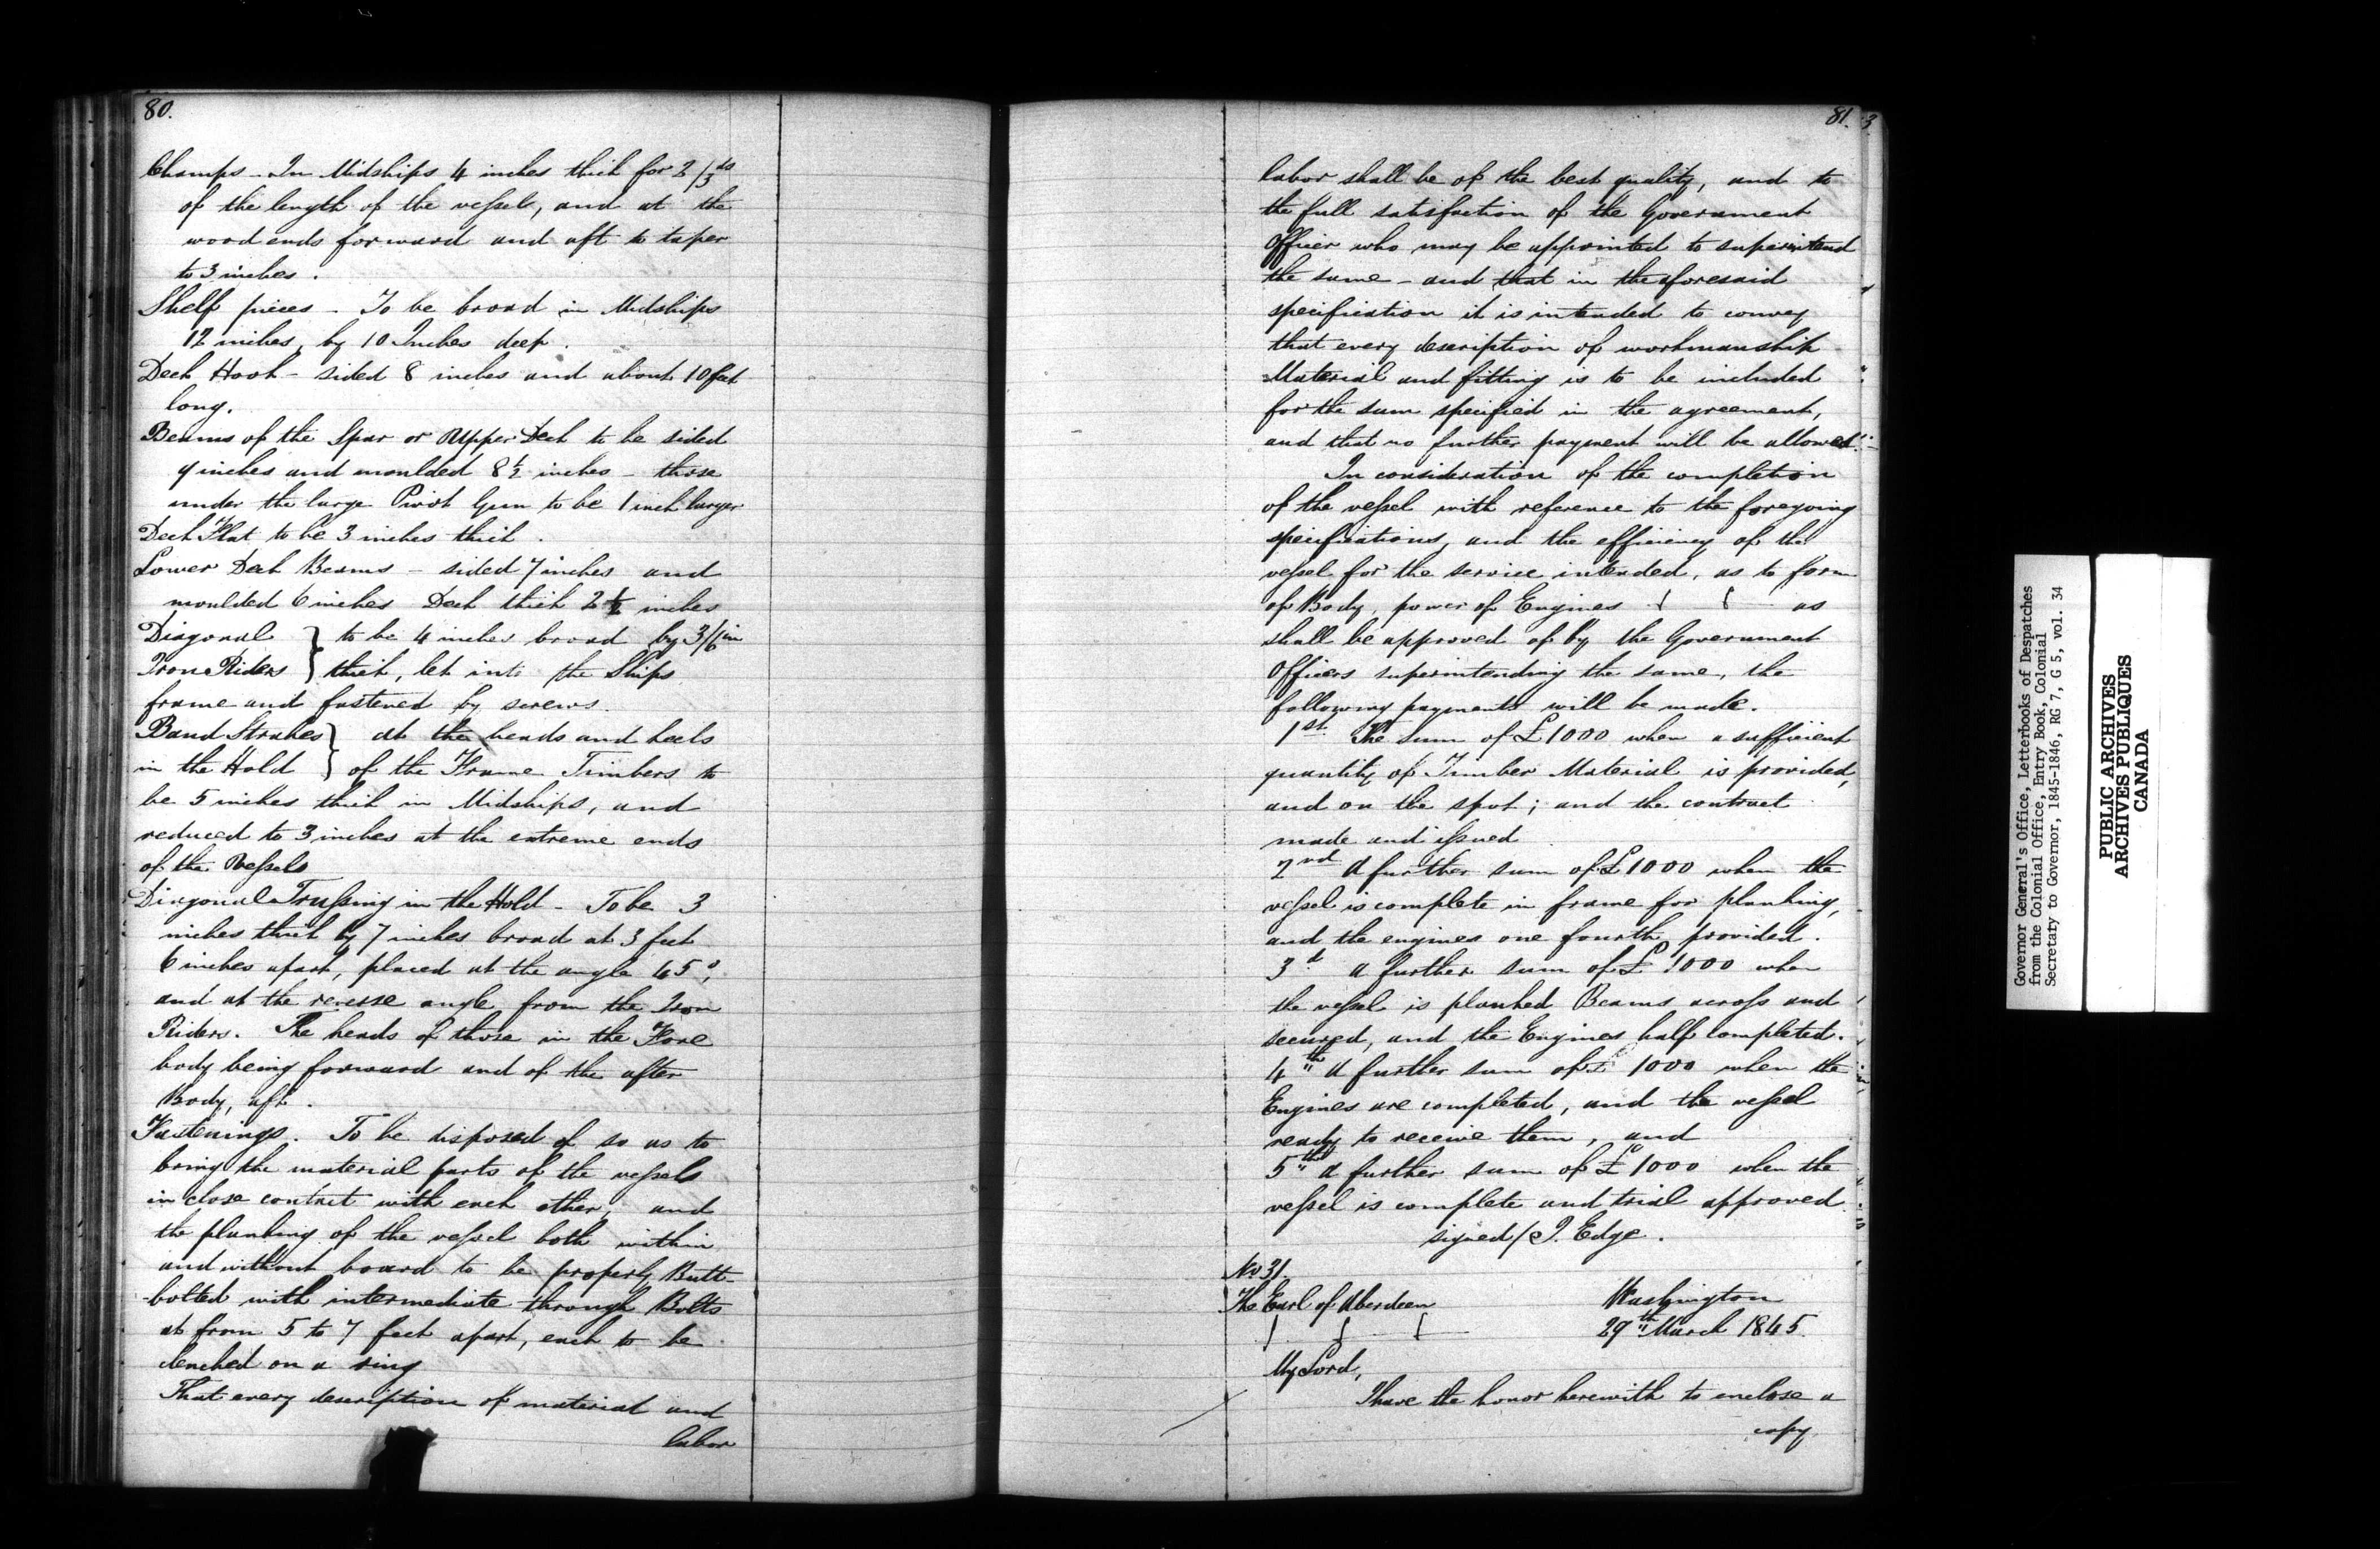 80.
Clamps - In Midships 4 inches thick for 2/3ds
of the length of the vessels, and at the
wood ends forward and aft to taper
to 3 inches.
Shelf pieces - To be broad in Midships
12 inches, by 10 Inches deep.
Deck Hook - sided 8 inches and about 10 feet
long.
Beams of the Spar or Upper Deck to be sided
9 inches and moulded 8½ inches - those
under the large Pivot Gun to be 1 inch larger
Deck Flat to be 3 inches thick.
Lower Deck Beams - sided 7 inches and
moulded 6 inches Deck thick 2½ inches
Diagonal } to be 4 inches broad by 3/6 in
Iron Riders } thick, let into the Ships
frame and fastened by screws.
Band Strakes } at the heads and heels
in the Hold } of the Frame Timbers to
be 5 inches thick in Midships, and
reduced to 3 inches at the extreme ends
of the Vessels
Diagonal Trussing in the Hold - To be 3
inches thick by 7 inches broad at 3 feet
6 inches apart, placed at the angle 45°,
and at the reverse angle from the Iron
Riders. The heads of those in the Fore
body being forward and of the after
Body, aft.
Fastenings. To be disposed of so as to
bring the material parts of the vessels
in close contact with each other, and
the planking of the vessel both within
and without board to be properly Butt-
-bolted with intermediate through Bolts
at from 5 to 7 feet apart, each to be
clenched on a ring
That every description of material and
labor
81. 3
labor shall be of the best quality, and to
the full satisfaction of the Government
Officer who may be appointed to superintend
the same - and that in the aforesaid
specification it is intended to convey
that every description of workmanship
Material and fitting is to be included
for the sum specified in the agreement,
and that no further payment will be allowed."-
In consideration of the completion
of the vessel with reference to the foregoing
specifications, and the efficiency of the
vessel for the service intended, as to form
of Body, power of Engines as
shall be approved of by the Government
Officers superintending the same, the
following payments will be made.
1st The sum of £1000 when a sufficient
quantity of Timber Material is provided,
and on the spot; and the contract
made and issued
2nd A further sum of £1000 when the
vessel is complete in frame for planking,
and the engines one fourth provided.
3d A further sum of £1000 when
the vessel is planked Beams across and
secured, and the Engines half completed.
4th A further sum of £1000 when the
Engines are completed, and the vessel
ready to receive them, and
5th A further sum of £1000 when the
vessel is complete and trial approved
signed/ J. Edge.
No 31.
The Earl of Aberdeen Washington
29th March 1845.
My Lord,
I have the honor herewith to enclose a
copy
Governor General's Office, Letterbooks of Despatches
from the Colonial Office, Entry Book, Colonial
Secretary to Governor, 1845-1846, RG 7, G 5, vol. 34
PUBLIC ARCHIVES
ARCHIVES PUBLIQUES
CANADA